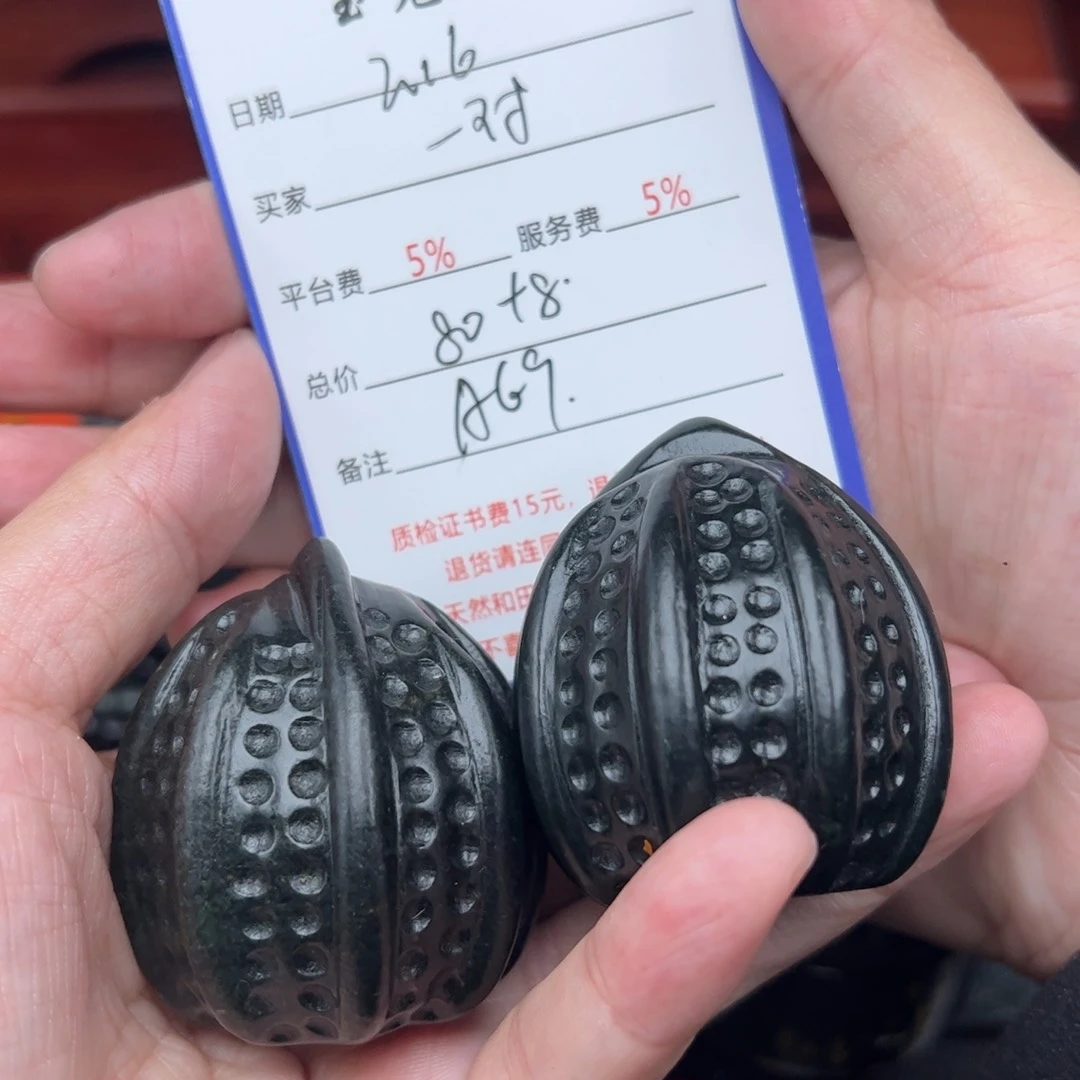 日期 2016
一对
买家
平台费 5% 服务费 5%
总价 80+8.
备注 AG9.
质检证书费15元，退
退货请连
天然和田
不喜